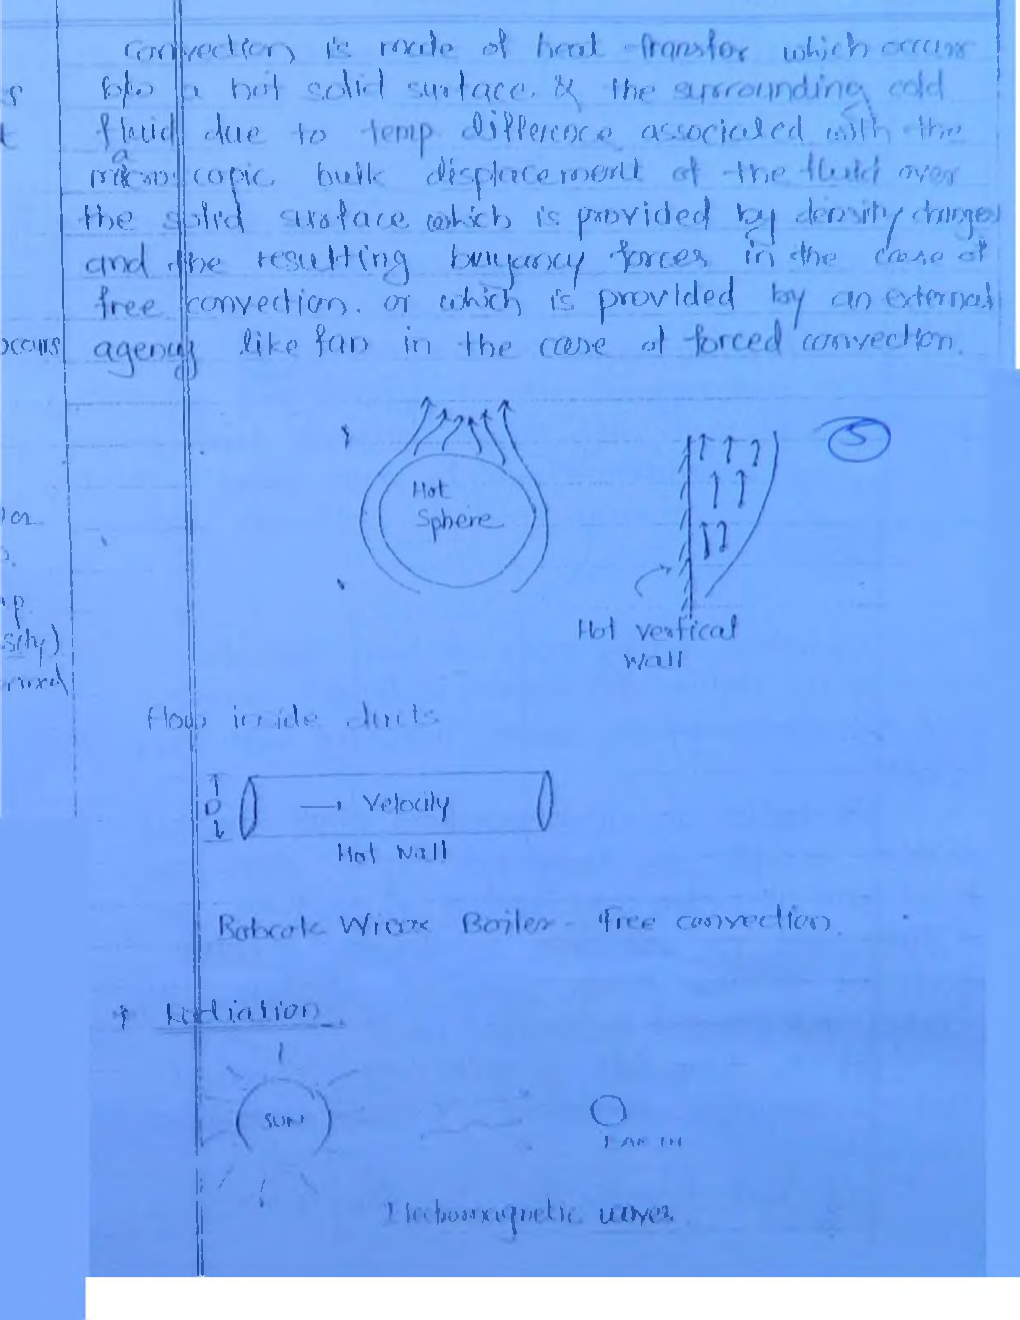 Convection is mode of heat transfer which occurs
b/w a hot solid surface & the surrounding cold
fluid due to temp difference associated with the
macroscopic bulk displacement of the fluid over
the solid surface which is provided by density changes
and the resulting buoyancy forces in the case of
free convection. or which is provided by an external
agency like fan in the case of forced convection.
5
Hot
Sphere
Hot vertical
wall
Flow inside ducts
D
→ Velocity
Hot wall
Babcok Wicox Boiler - Free convection.
* Radiation
SUN
EARTH
Electromagnetic waves